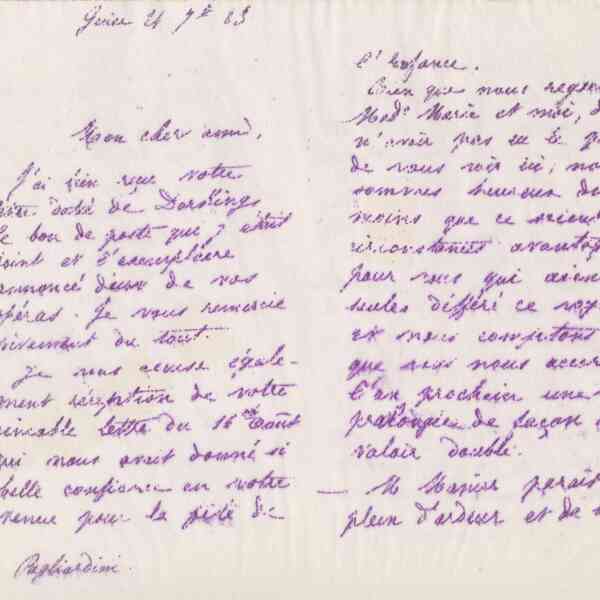 Guise 21 7bre 83
Mon cher ami,
J'ai bien reçu votre
lettre datée de Dorkings
le bon de poste qui y était
joint et l'exemplaire
annoncé deux de vos
opéras. Je vous remercie
vivement du tout.
Je vous accuse égale-
ment réception de votre
aimable lettre du 16 août
qui nous avait donné si
belle confiance en votre
venue pour la fête de
Pagliardini.
l'Enfance.
Bien que nous
Made Marie et moi, de
n'avoir pas eu le
de vous voir ici, nous
sommes heureux du
moins que ce soient
circonstances
pour vous qui aient
seules différé ce
et nous comptons
que vous nous
l'an prochain une
prolongée de façon
valoir double.
— M Manier
plein d'ardeur et de